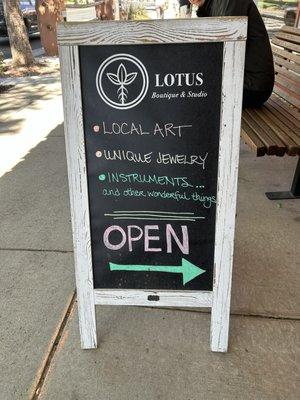 LOTUS
Boutique & Studio
LOCAL ART
UNIQUE JEWELRY
INSTRUMENTS...
and other wonderful things
OPEN